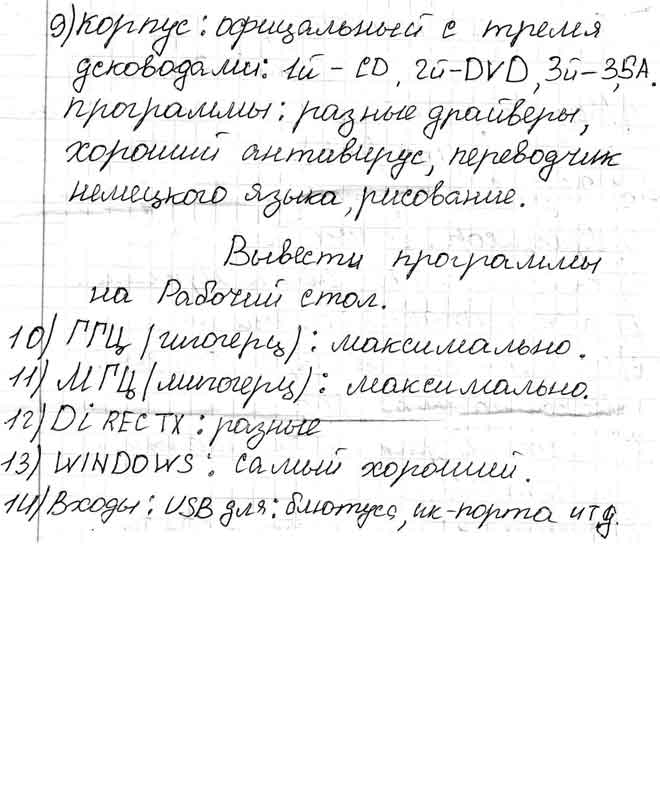 9) Корпус: офицальный с тремя
дсководами: 1й - CD, 2й-DVD, 3й-3,5А.
программы: разные драйверы,
хороший антивирус, переводчик
немецкого языка, рисование.
Вывести программы
на Рабочий стол.
10) ГГЦ (гипогерц): максимально.
11) МГЦ (мипогерц): максимально.
12) DiRECTX: разные
13) WINDOWS: самый хороший.
14) Входы: USB для: блютуса, ик-порта итд.